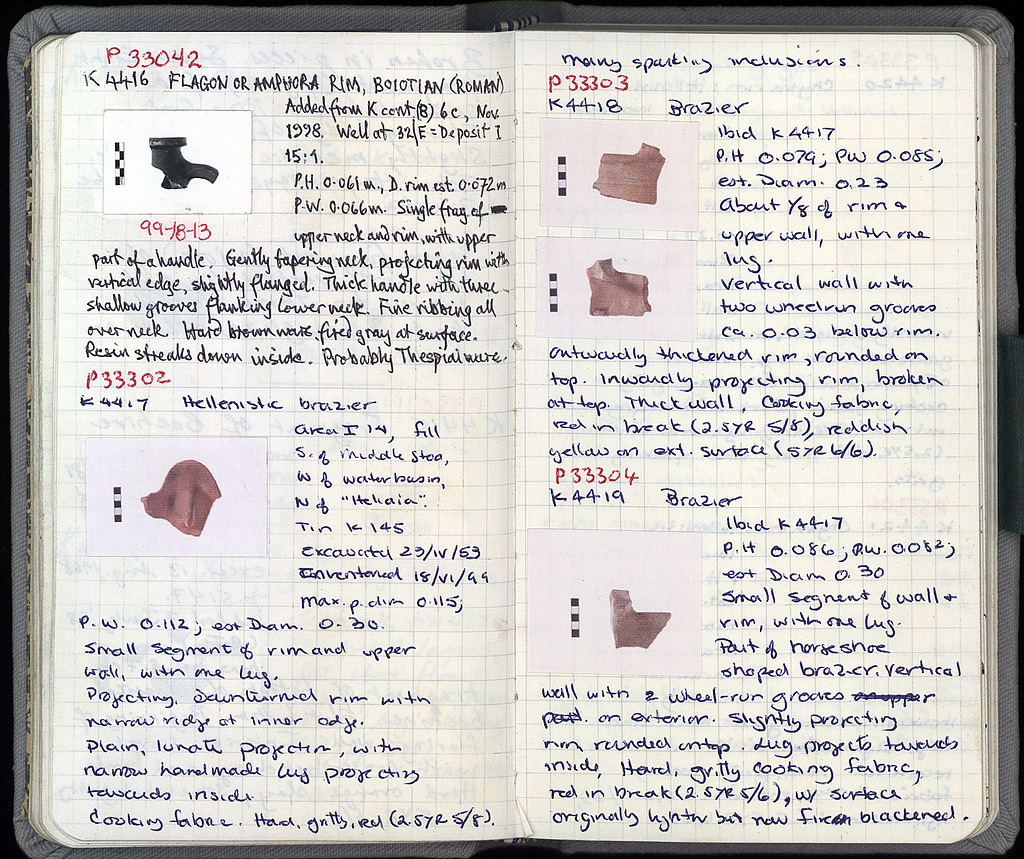 P 33042
K 4416 FLAGON OR AMPHORA RIM, BOIOTIAN (ROMAN)
Added from K cont. (B) 6c, Nov.
1998. Well at 32/E = Deposit I
15:1.
P.H. 0.061 m., D. rim est. 0.072 m
P.W. 0.066 m. Single frag. of
upper neck and rim, with upper
99-18-13
part of a handle. Gently tapering neck, projecting rim with
vertical edge, slightly flanged. Thick handle with three
shallow grooves flanking lower neck. Fine ribbing all
over neck. Hard brown ware, fired gray at surface.
Resin streaks down inside. Probably Thespial ware.
P33302
K 4417 Hellenistic brazier
Area I 14, fill
S. of middle stoa,
W of water basin,
N of "Heliaia".
Tin K 145
Excavated 23/IV/53
Inventoried 18/VI/99
max. p. dim 0.115;
P.W. 0.112; est Diam. 0.30.
Small segment of rim and upper
wall, with one lug.
Projecting, downturned rim with
narrow ridge at inner edge.
Plain, lunate projection, with
narrow handmade lug projecting
towards inside.
Cooking fabric. Hard, gritty, red (2.5YR 5/8).
many sparkling inclusions.
P33303
K4418 Brazier
Ibid K 4417
P.H 0.079; PW 0.085;
est. Diam. 0.23
About 1/8 of rim +
upper wall, with one
lug.
Vertical wall with
two wheelrun grooves
ca. 0.03 below rim.
outwardly thickened rim, rounded on
top. Inwardly projecting rim, broken
at top. Thick wall. Cooking fabric,
red in break (2.5YR 5/8), reddish
yellow on ext. surface (5YR 6/6).
P33304
K 4419 Brazier
Ibid K 4417
P.H 0.086; P.W. 0.082;
est Diam 0.30
Small segment of wall +
rim, with one lug.
Part of horseshoe
shaped brazier. Vertical
wall with 2 wheel-run grooves on upper
part. on exterior. Slightly projecting
rim rounded on top. Lug projects towards
inside, Hard, gritty cooking fabric,
red in break (2.5YR 5/6), w/ surface
originally lighter but now blackened.